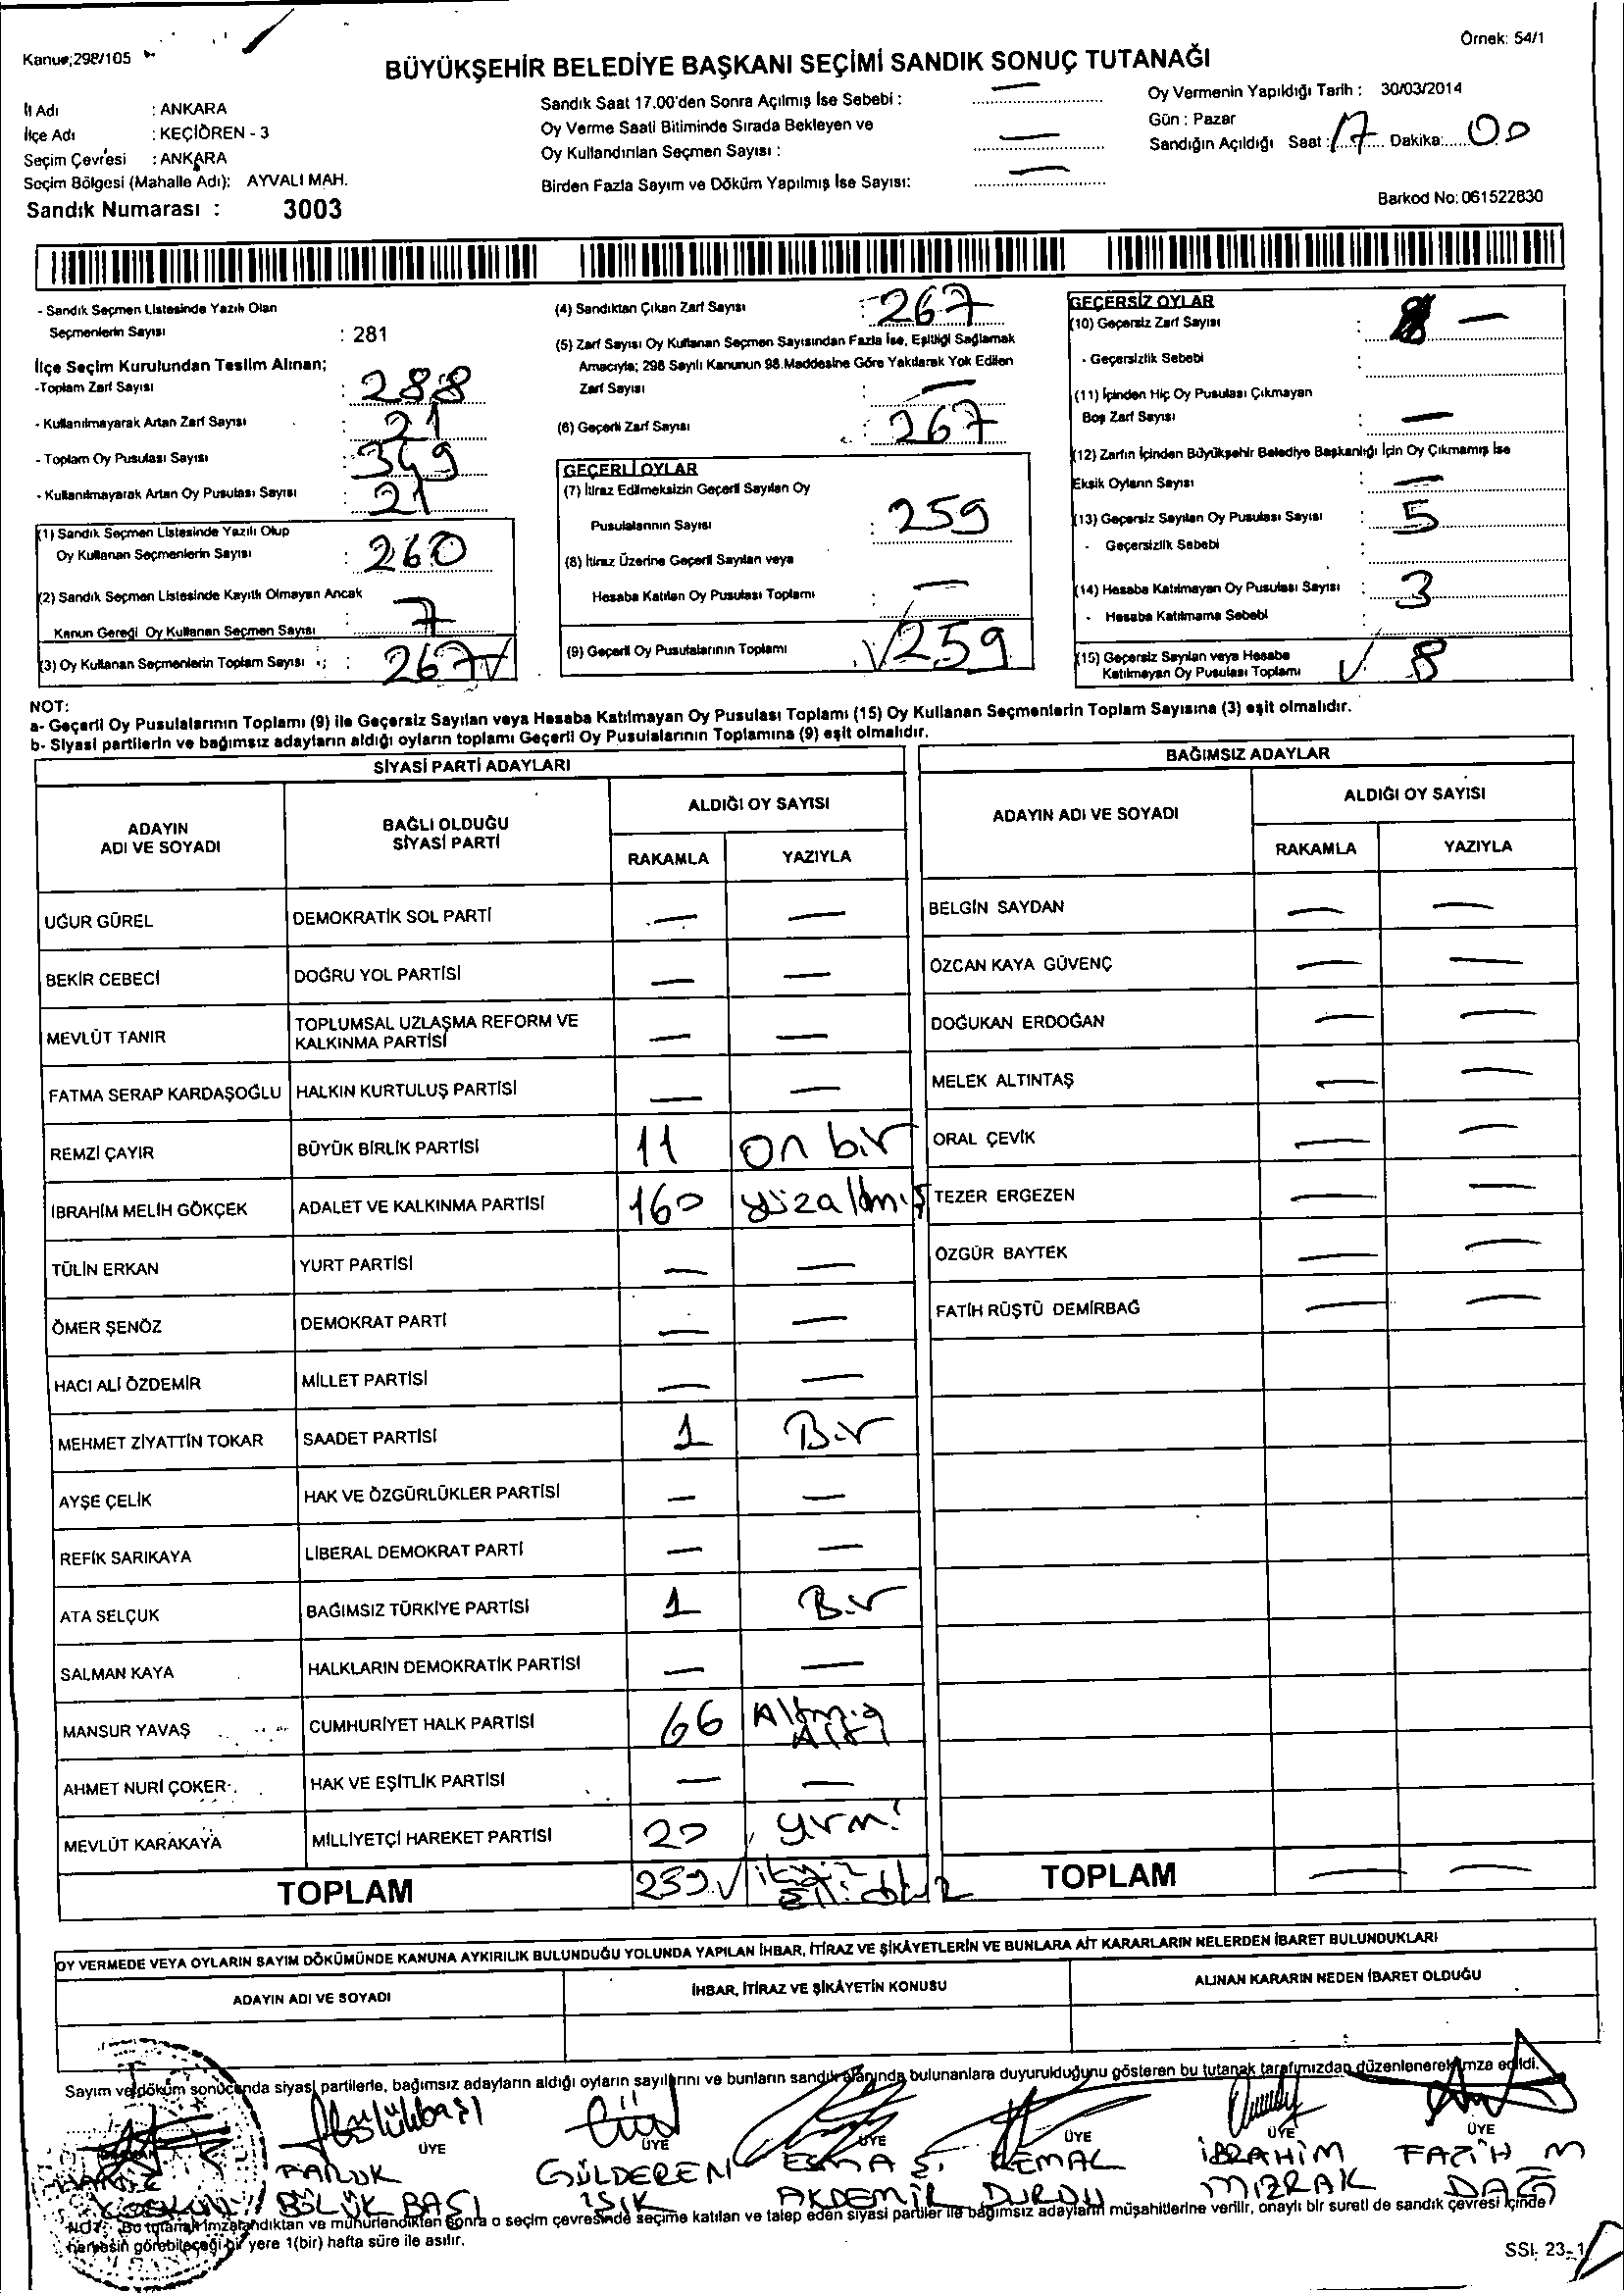 Kanun;298/105
Örnek: 54/1
BÜYÜKŞEHİR BELEDİYE BAŞKANI SEÇİMİ SANDIK SONUÇ TUTANAĞI
İl Adı : ANKARA
İlçe Adı : KEÇİÖREN - 3
Seçim Çevresi : ANKARA
Seçim Bölgesi (Mahalle Adı): AYVALI MAH.
Sandık Numarası : 3003
Sandık Saat 17.00'den Sonra Açılmış İse Sebebi : —
Oy Verme Saati Bitiminde Sırada Bekleyen ve
Oy Kullandırılan Seçmen Sayısı : —
Birden Fazla Sayım ve Döküm Yapılmış İse Sayısı: —
Oy Vermenin Yapıldığı Tarih : 30/03/2014
Gün : Pazar
Sandığın Açıldığı Saat : 17 Dakika: 00
Barkod No: 061522830
- Sandık Seçmen Listesinde Yazılı Olan
Seçmenlerin Sayısı : 281
İlçe Seçim Kurulundan Teslim Alınan;
-Toplam Zarf Sayısı : 288
- Kullanılmayarak Artan Zarf Sayısı : 21
- Toplam Oy Pusulası Sayısı : 349
- Kullanılmayarak Artan Oy Pusulası Sayısı : 21
(1) Sandık Seçmen Listesinde Yazılı Olup
Oy Kullanan Seçmenlerin Sayısı : 260
(2) Sandık Seçmen Listesinde Kayıtlı Olmayan Ancak
Kanun Gereği Oy Kullanan Seçmen Sayısı : 7
(3) Oy Kullanan Seçmenlerin Toplam Sayısı : 267 √
(4) Sandıktan Çıkan Zarf Sayısı : 267
(5) Zarf Sayısı Oy Kullanan Seçmen Sayısından Fazla İse, Eşitliği Sağlamak
Amacıyla; 298 Sayılı Kanunun 98.Maddesine Göre Yakılarak Yok Edilen
Zarf Sayısı : —
(6) Geçerli Zarf Sayısı : 267
GEÇERLİ OYLAR
(7) İtiraz Edilmeksizin Geçerli Sayılan Oy
Pusulalarının Sayısı : 259
(8) İtiraz Üzerine Geçerli Sayılan veya
Hesaba Katılan Oy Pusulası Toplamı : —
(9) Geçerli Oy Pusulalarının Toplamı √ 259
GEÇERSİZ OYLAR
(10) Geçersiz Zarf Sayısı : —
- Geçersizlik Sebebi :
(11) İçinden Hiç Oy Pusulası Çıkmayan
Boş Zarf Sayısı : —
(12) Zarfın İçinden Büyükşehir Belediye Başkanlığı İçin Oy Çıkmamış İse
Eksik Oyların Sayısı : —
(13) Geçersiz Sayılan Oy Pusulası Sayısı : 5
- Geçersizlik Sebebi :
(14) Hesaba Katılmayan Oy Pusulası Sayısı : 3
- Hesaba Katılmama Sebebi :
(15) Geçersiz Sayılan veya Hesaba
Katılmayan Oy Pusulası Toplamı √ 8
NOT:
a- Geçerli Oy Pusulalarının Toplamı (9) ile Geçersiz Sayılan veya Hesaba Katılmayan Oy Pusulası Toplamı (15) Oy Kullanan Seçmenlerin Toplam Sayısına (3) eşit olmalıdır.
b- Siyasi partilerin ve bağımsız adayların aldığı oyların toplamı Geçerli Oy Pusulalarının Toplamına (9) eşit olmalıdır.
SİYASİ PARTİ ADAYLARI
ADAYIN ADI VE SOYADI
BAĞLI OLDUĞU SİYASİ PARTİ
ALDIĞI OY SAYISI
RAKAMLA YAZIYLA
UĞUR GÜREL DEMOKRATİK SOL PARTİ — —
BEKİR CEBECİ DOĞRU YOL PARTİSİ — —
MEVLÜT TANIR TOPLUMSAL UZLAŞMA REFORM VE KALKINMA PARTİSİ — —
FATMA SERAP KARDAŞOĞLU HALKIN KURTULUŞ PARTİSİ — —
REMZİ ÇAYIR BÜYÜK BİRLİK PARTİSİ 11 on bir
İBRAHİM MELİH GÖKÇEK ADALET VE KALKINMA PARTİSİ 160 yüzaltmış
TÜLİN ERKAN YURT PARTİSİ — —
ÖMER ŞENÖZ DEMOKRAT PARTİ — —
HACI ALİ ÖZDEMİR MİLLET PARTİSİ — —
MEHMET ZİYATTİN TOKAR SAADET PARTİSİ 1 Bir
AYŞE ÇELİK HAK VE ÖZGÜRLÜKLER PARTİSİ — —
REFİK SARIKAYA LİBERAL DEMOKRAT PARTİ — —
ATA SELÇUK BAĞIMSIZ TÜRKİYE PARTİSİ 1 Bir
SALMAN KAYA HALKLARIN DEMOKRATİK PARTİSİ — —
MANSUR YAVAŞ CUMHURİYET HALK PARTİSİ 66 Altmış Altı
AHMET NURİ ÇOKER HAK VE EŞİTLİK PARTİSİ — —
MEVLÜT KARAKAYA MİLLİYETÇİ HAREKET PARTİSİ 20 yirmi
TOPLAM 259 √
BAĞIMSIZ ADAYLAR
ADAYIN ADI VE SOYADI
ALDIĞI OY SAYISI
RAKAMLA YAZIYLA
BELGİN SAYDAN — —
ÖZCAN KAYA GÜVENÇ — —
DOĞUKAN ERDOĞAN — —
MELEK ALTINTAŞ — —
ORAL ÇEVİK — —
TEZER ERGEZEN — —
ÖZGÜR BAYTEK — —
FATİH RÜŞTÜ DEMİRBAĞ — —
TOPLAM — —
OY VERMEDE VEYA OYLARIN SAYIM DÖKÜMÜNDE KANUNA AYKIRILIK BULUNDUĞU YOLUNDA YAPILAN İHBAR, İTİRAZ VE ŞİKÂYETLERİN VE BUNLARA AİT KARARLARIN NELERDEN İBARET BULUNDUKLARI
ADAYIN ADI VE SOYADI
İHBAR, İTİRAZ VE ŞİKÂYETİN KONUSU
ALINAN KARARIN NEDEN İBARET OLDUĞU
Sayım ve döküm sonucunda siyasi partilerle, bağımsız adayların aldığı oyların sayılarını ve bunların sandık alanında bulunanlara duyurulduğunu gösteren bu tutanak tarafımızdan düzenlenerek imza edildi.
ÜYE ÜYE ÜYE ÜYE ÜYE ÜYE
FARUK BÖLÜKBAŞI
GÜLDEREN IŞIK
ESMA Ş. AKDEMİR
KEMAL DURDU
İBRAHİM MIZRAK
FATİH M DAĞ
NOT: Bu tutanak imzalandıktan ve mühürlendikten sonra o seçim çevresinde seçime katılan ve talep eden siyasi partiler ile bağımsız adayların müşahitlerine verilir, onaylı bir sureti de sandık çevresi içinde
herkesin görebileceği bir yere 1(bir) hafta süre ile asılır.
SSİ- 23-1